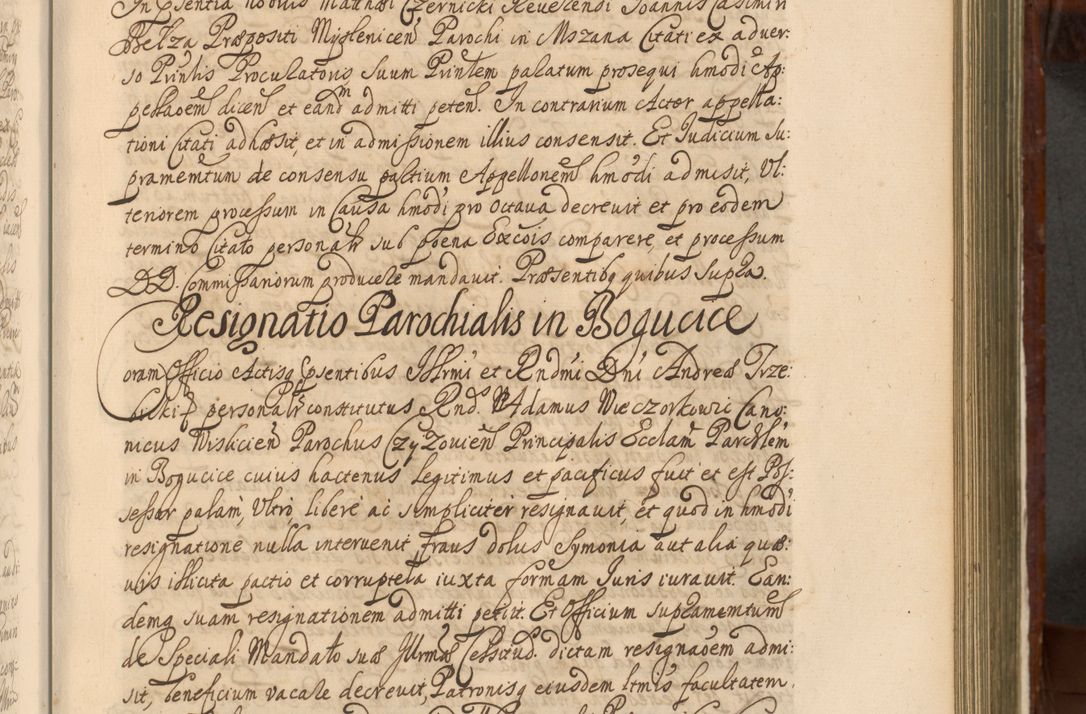 In Psentia nobilis Matthæi Czernicki Reverendi Joannis Casimiri
Bełza Præpositi Myślenicen Parochi in Mszana Citati ex adver:
so Prinlis Proculatoris suum Prinlem palatum prosequi hmodi Ap:
pellaoem dicen et eand admitti peten. In contrarium Actor appella:
tioni Citati adhæsit, et in admissionem illius consensit. Et Iudicium su:
pramemtum de consensu partium Appellonem hmodi admisit, Ul:
teriorem processum in Causa hmodi pro octava decrevit et pro eodem
termino Citato personalr sub poena Excois comparere, et processum
DD. Commissariorum producere mandavit. Præsentibq quibus supra.
Resignatio Parochialis in Bogucice
Coram Officio Actisq Psentibus Illrmi et Rndmi Dni Andreæ Trze:
bicki personalr constitutus Rnds Adamus Wieczorkowic Cano:
nicus Wislicien Parochus Czyzovien Principalis Ecclam Parchlem
in Bogucice cuius hactenus legitimus et pacificus fuit et est Pos:
sessor palam, Ultro, libere ac simpliciter resignavit, et quod in hmodi
resignatione nulla intervenit fraus dolus symonia aut alia quæ:
vis illicita pactio et corruptela iuxta formam Iuris iuravit. Ean:
demq suam resignationem admitti petiit. Et Officium supramemtum
de Speciali Mandato suæ Illrmæ Celsitud. dictam resignaoem admi:
sit, beneficium vacare decrevit, Patronisq eiusdem ltmis facultatem